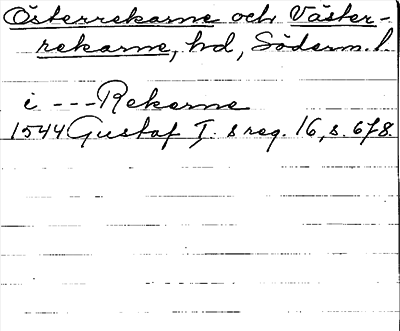 Österrekarne och Väster-
rekarne, hd, Söderm. l.
i --- Rekarne
1544 Gustaf I. s reg. 16, s. 678.